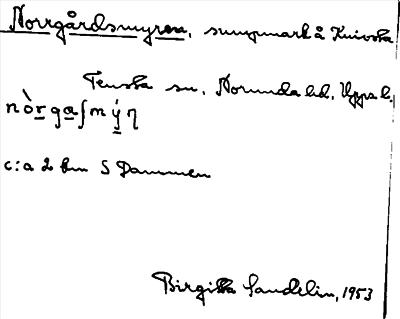 Norrgårdsmyren, sumpmark å Knivsta
Tensta sn, Norunda hd, Upps. l.
nòrgaʃmýη
c:a 2 km S Dammen
Birgitta Sandelin, 1953